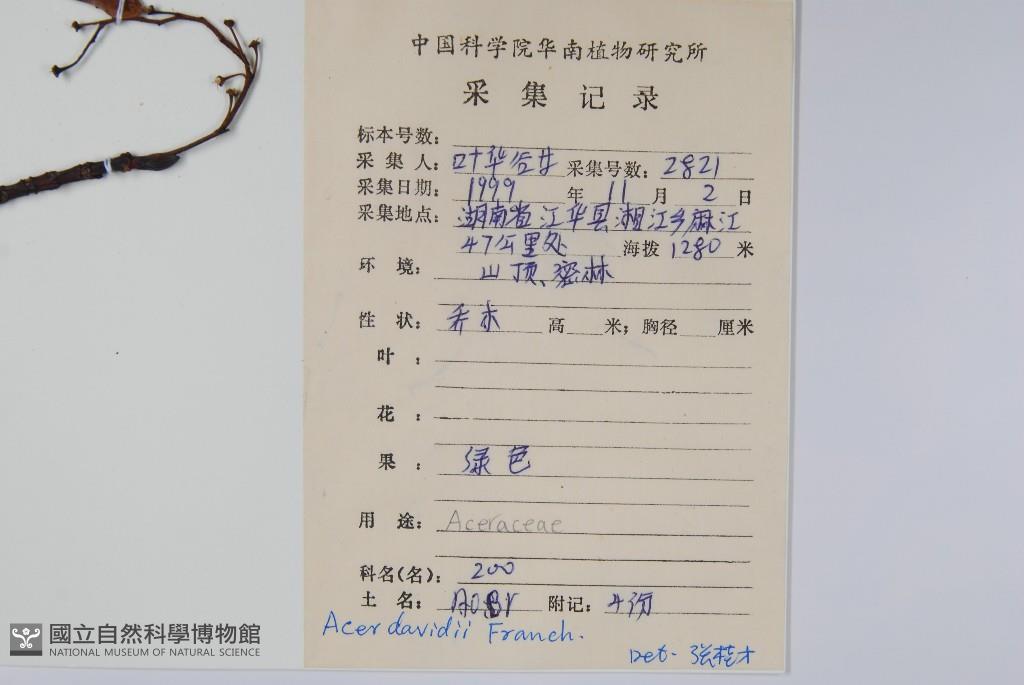 中国科学院华南植物研究所
采集记录
标本号数：
采集人：叶华谷 采集号数：2821
采集日期：1999年11月2日
采集地点：湖南省江华县湘江乡麻江
47公里处 海拨1280米
环境：山顶、密林
性状：乔木 高 米；胸径 厘米
叶：
花：
果：绿色
用途：Aceraceae
科名(名)：200
土名： 附记：4份
Acer davidii Franch.
Det. 张桂才
國立自然科學博物館
NATIONAL MUSEUM OF NATURAL SCIENCE